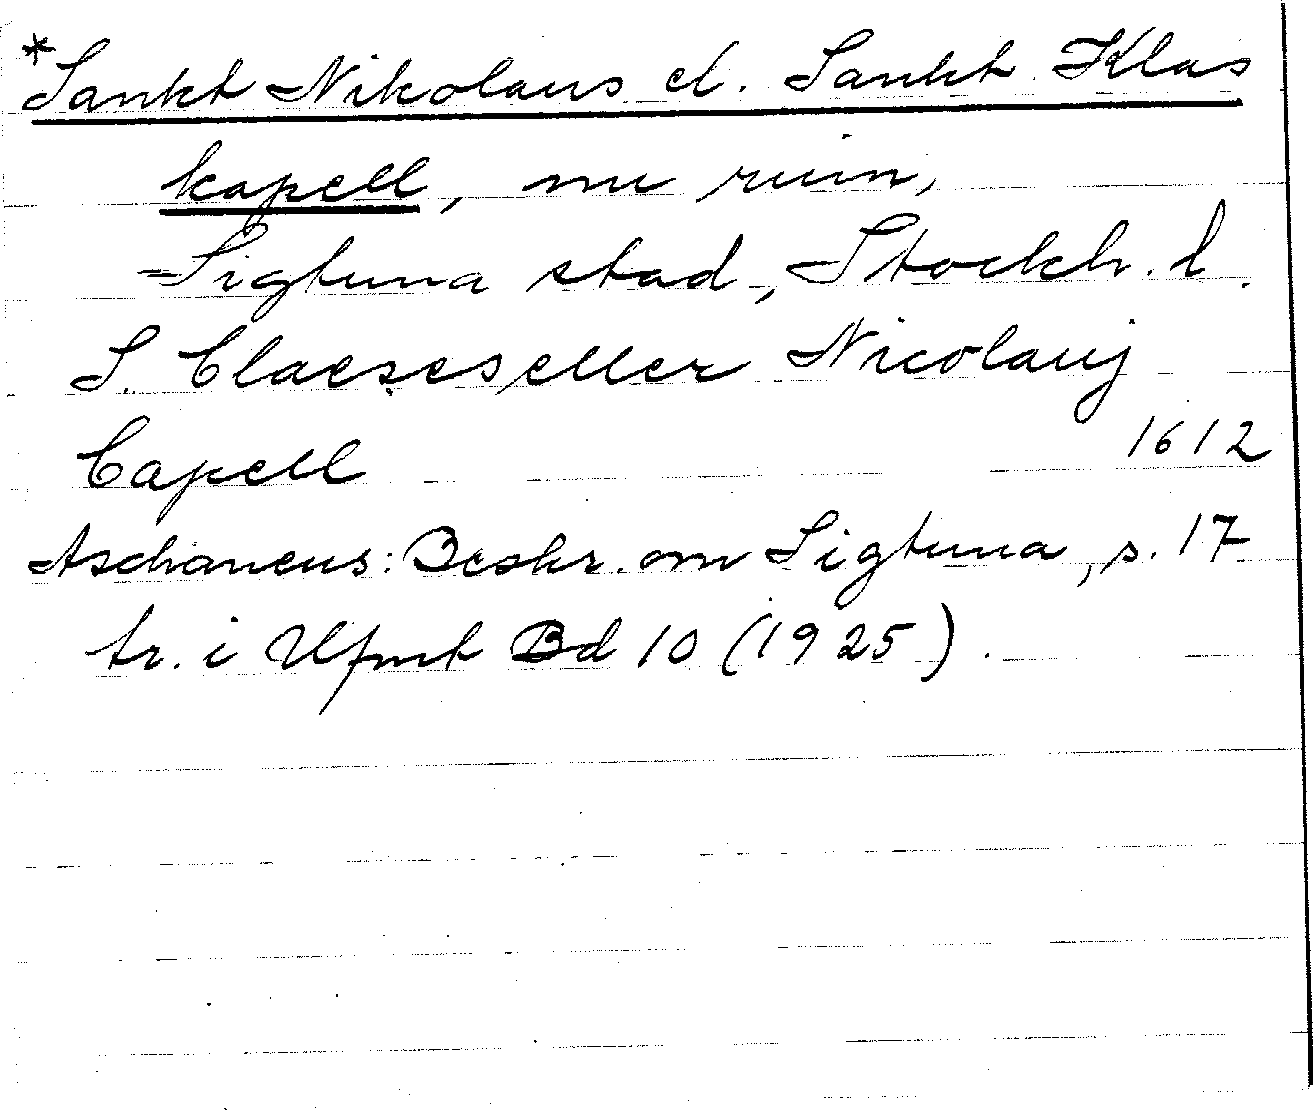 *Sankt Nikolaus el. Sankt Klas
kapell, nu ruin,
Sigtuna stad, Stockh. l.
S. Claeses eller Nicolaij
Capell 1612
Aschaneus: Beskr. om Sigtuna, s. 17
tr. i Ufmt Bd 10 (1925).